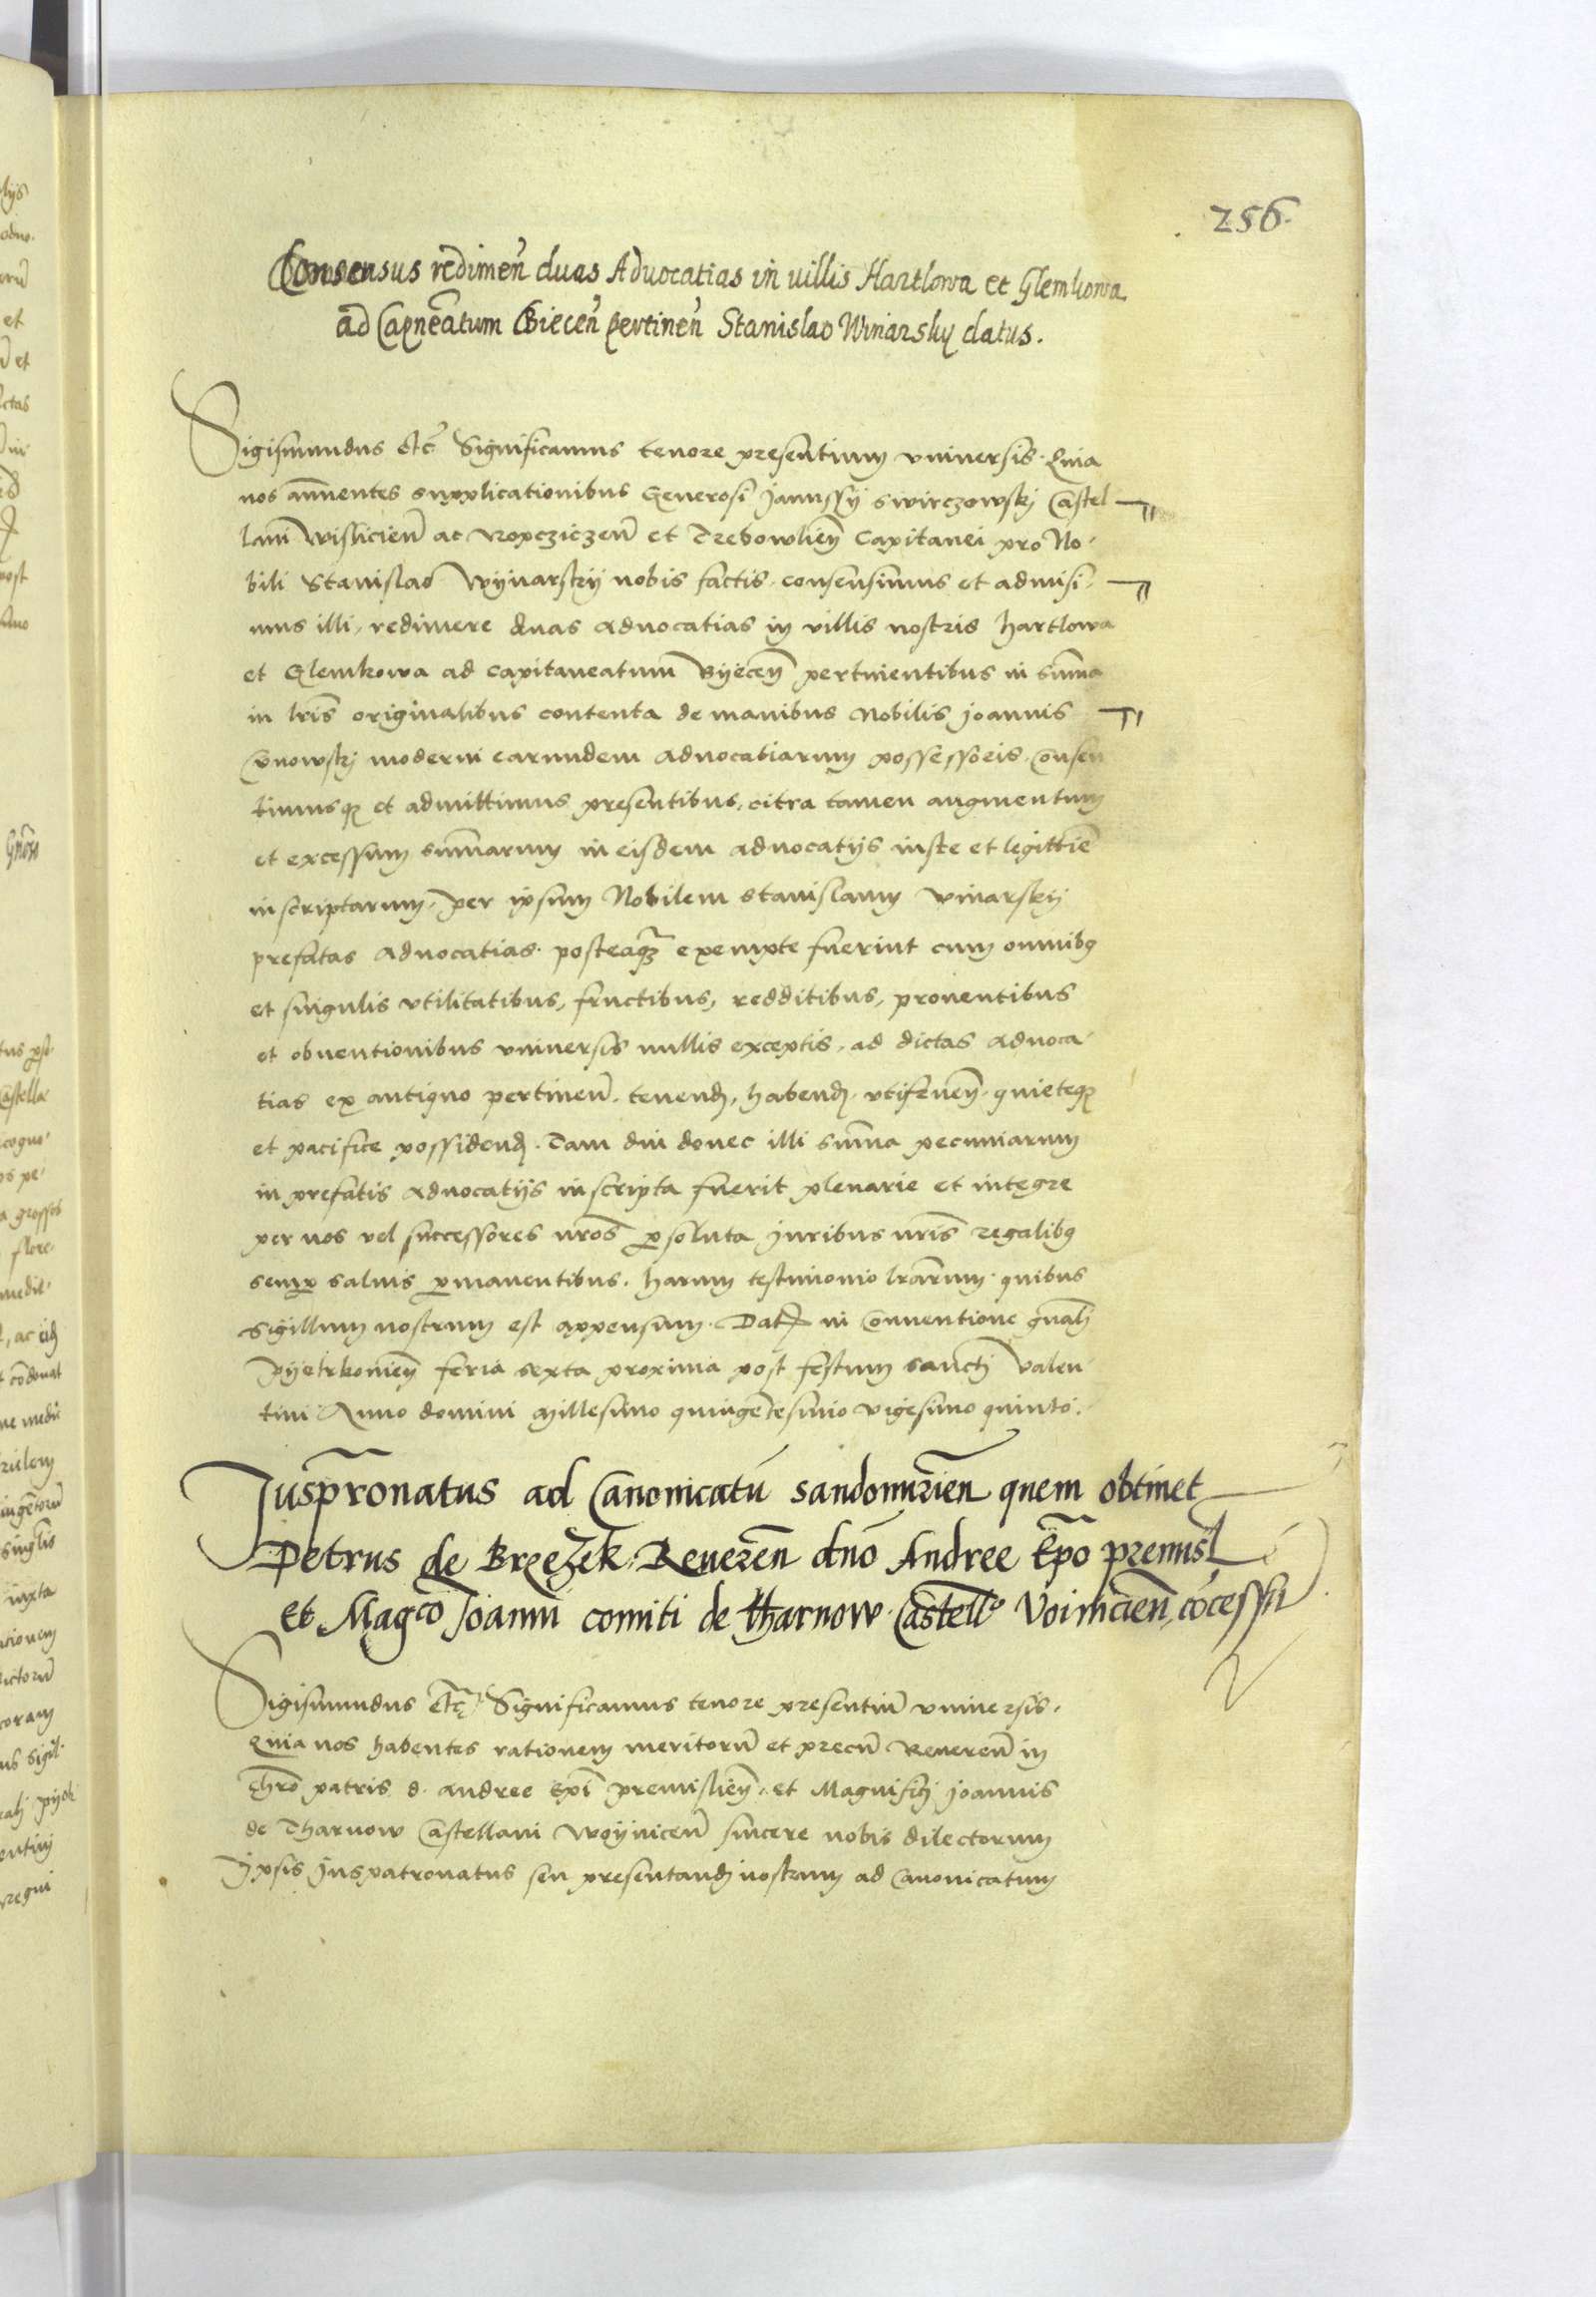 256.
Consensus redimeñ duas Advocatias in villis Hartlowa et Glemkowa
ad Capneatum Bieceñ pertineñ Stanislao Winarsky datus.
Sigismundus etc̃ Significamus tenore presentium vniversis. Quia
nos annuentes supplicationibus Generosi Janussij Swirczowskj Castel
lani Wislicieñ ac Ropcziczeñ et Trebowlieñ Capitanei pro No-
bili Stanislao Wijnarskij nobis factis. consensimus et admisi-
mus illi, redimere duas advocatias in villis nostris Hartlowa
et Glemkowa ad capitaneatum Byeceñ pertinentibus in sum̃a
in lr̃is originalibus contenta de manibus Nobilis Joannis
moderni earundem advocatiarum possessoris. Consen
timusqꝫ et admittimus presentibus, citra tamen augmentum
et excessum sum̃arum in eisdem advocatijs iuste et legittĩe
inscriptarum, per ipsum Nobilem Stanislaum Vinarskij
prefatas advocatias. posteaqꝫ exempte fuerint cum omnibꝫ
et singulis vtilitatibus, fructibus, redditibus, proventibus
et obventionibus vniversis nullis exceptis, ad dictas advoca-
tias ex antiquo pertineñ. tenenđ, habenđ. vtifrueñ. quieteqꝫ
et pacifice possidenđ. Tam diu donec illi sum̃a pecuniarum
in prefatis advocatijs inscripta fuerit plenarie et integre
per nos vel successores nr̃os ꝑsoluta Juribus nr̃is regalibꝫ
semꝑ salvis ꝑmanentibus. harum testimonio lr̃arum. quibus
Sigillum nostrum est appensum. Dat̃ in Conventione gñali
Pijetrkovieñ feria sexta proxima post festum sancti Valen-
tini Anno domini Millesimo quingẽtesimo vigesimo quinto.
Juspr̃onatus ad Canonicatũ sandomirieñ quem obtinet
Petrus de Brzezek Revereñ dño Andree Ep̃o premisl̃
et Mag̃co Joanni comiti de tharnow Castell̃o Voiniciẽn, cõcessũ
Sigismundus etc̃ Significamus tenore presentiũ vniversis.
Quia nos habentes rationem meritorũ et precũ Revereñ in
chr̃o patris d. Andree Ep̃i premislieñ. et Magnifici Joannis
de Tharnow Castellani Woijniceñ sincere nobis dilectorum
Ipsis Juspatronatus seu presentandi nostrum ad Canonicatum